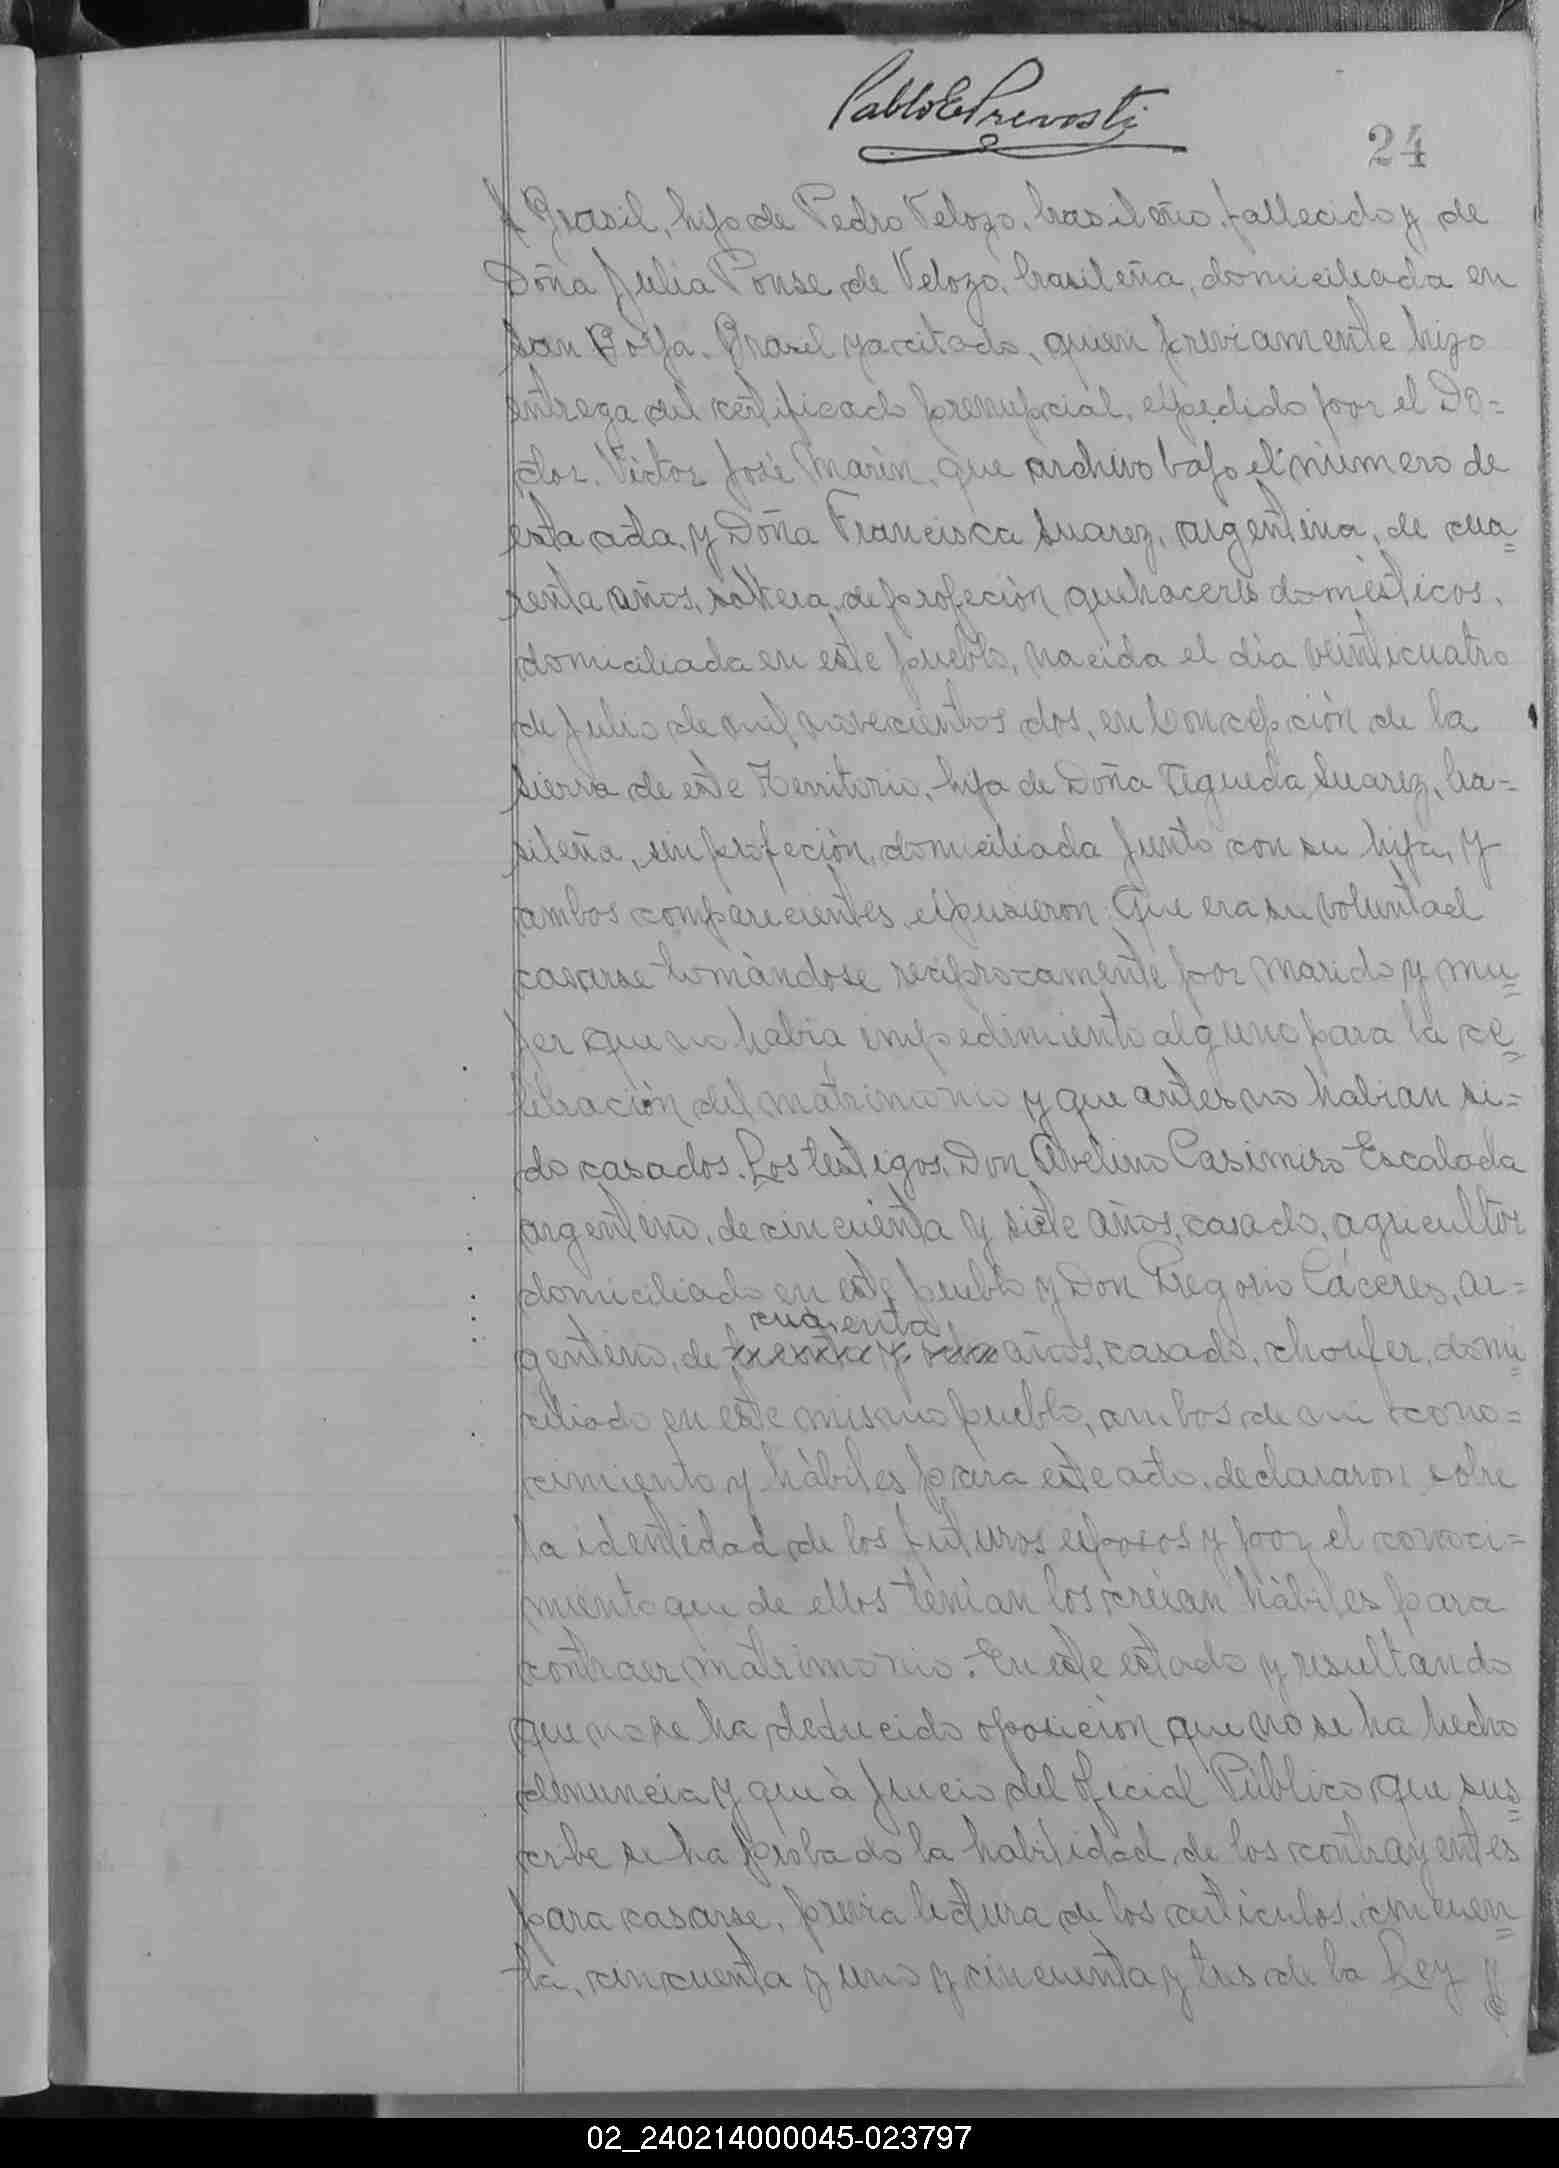 Pablo E Prevosti
24
Brasil, hijo de Pedro Velozo, brasileño, fallecido y de
Doña Julia Ponse de Velozo, brasileña, domiciliada en
San Borja, Brasil ya citado, quien previamente hizo
entrega del certificado prenupcial, espedido por el Do=
ctor. Victor José Marin, que archivo bajo el número de
esta acta, y Doña Francisca Suarez, argentina, de cua=
renta años, soltera, de profeción quehaceres domèsticos,
domiciliada en este pueblo, nacida el dia veinticuatro
de julio de mil novecientos dos, en Concepción de la
Sierra de este Territorio, hija de Doña Agueda Suarez, bra=
sileña, sin profeción, domiciliada junto con su hija, y
ambos comparecientes, espusieron: Que era su voluntad
casarse tomàndose reciprocamente por marido y mu=
jer que no habia impedimiento alguno para la ce=
lebración del matrimonio y que antes no habian si=
do casados. Los testigos, Don Avelino Casimiro Escalada
argentino, de cincuenta y siete años, casado, agricultor
domiciliado en este pueblo y Don Gregorio Cáceres, ar=
cuarenta
gentino, de treinta y años, casado, choufer, domi=
ciliado en este mismo pueblo, ambos de mi cono=
cimiento y hàbiles para este acto, declararon sobre
la identidad de los futuros esposos y por el conoci=
miento que de ellos tenian los creian hàbiles para
contraer matrimonio.- En este estado y resultando
que no se ha deducido oposición que no se ha hecho
denuncia y que à juicio del Oficial Pùblico que sus=
cribe se ha probado la habilidad de los contrayentes
para casarse, previa lectura de los articulos, cincuen=
ta, cincuenta y uno y cincuenta y tres de la Ley
02_240214000045-023797